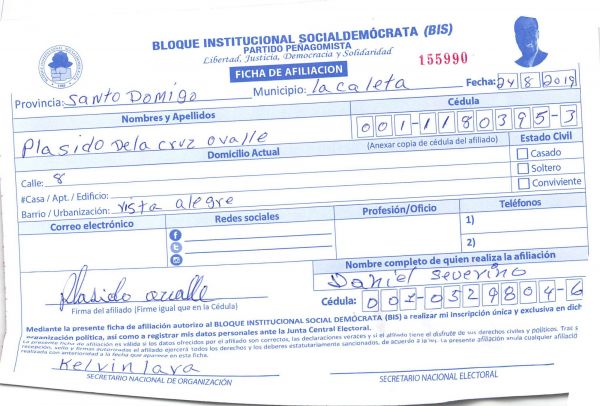 BLOQUE INSTITUCIONAL SOCIALDEMÓCRATA (BIS)
PARTIDO PEÑAGOMISTA
Libertad, Justicia, Democracia y Solidaridad
155990
FICHA DE AFILIACION
Provincia: Santo Domigo Municipio: la caleta Fecha: 24/8/2019
Nombres y Apellidos Cédula
Plasido Dela cruz ovalle 001-1180395-3
(Anexar copia de cédula del afiliado) Estado Civil
Domicilio Actual
Casado
Calle: 8 Soltero
#Casa / Apt. / Edificio: Conviviente
Barrio / Urbanización: vista alegre
Correo electrónico Redes sociales Profesión/Oficio Teléfonos
1)
2)
Nombre completo de quien realiza la afiliación
Daniel Severino
Plasido ovalle
Firma del afiliado (Firme igual que en la Cédula) Cédula: 001-0329804-6
Mediante la presente ficha de afiliación autorizo al BLOQUE INSTITUCIONAL SOCIAL DEMÓCRATA (BIS) a realizar mi inscripción única y exclusiva en dich
organización política, así como a registrar mis datos personales ante la Junta Central Electoral.
La presente ficha de afiliación es válida si los datos ofrecidos por el afiliado son correctos, las declaraciones veraces y si el afiliado tiene el disfrute de sus derechos civiles y políticos. Tras s
recepción, sello y firma autorizada el afiliado ejercerá todos los derechos y los deberes estatutariamente sancionados, de acuerdo a la ley. La presente afiliación anula cualquier afiliación
realizada con anterioridad a la fecha que aparece en esta ficha.
Kelvin lara
SECRETARIO NACIONAL DE ORGANIZACIÓN SECRETARIO NACIONAL ELECTORAL